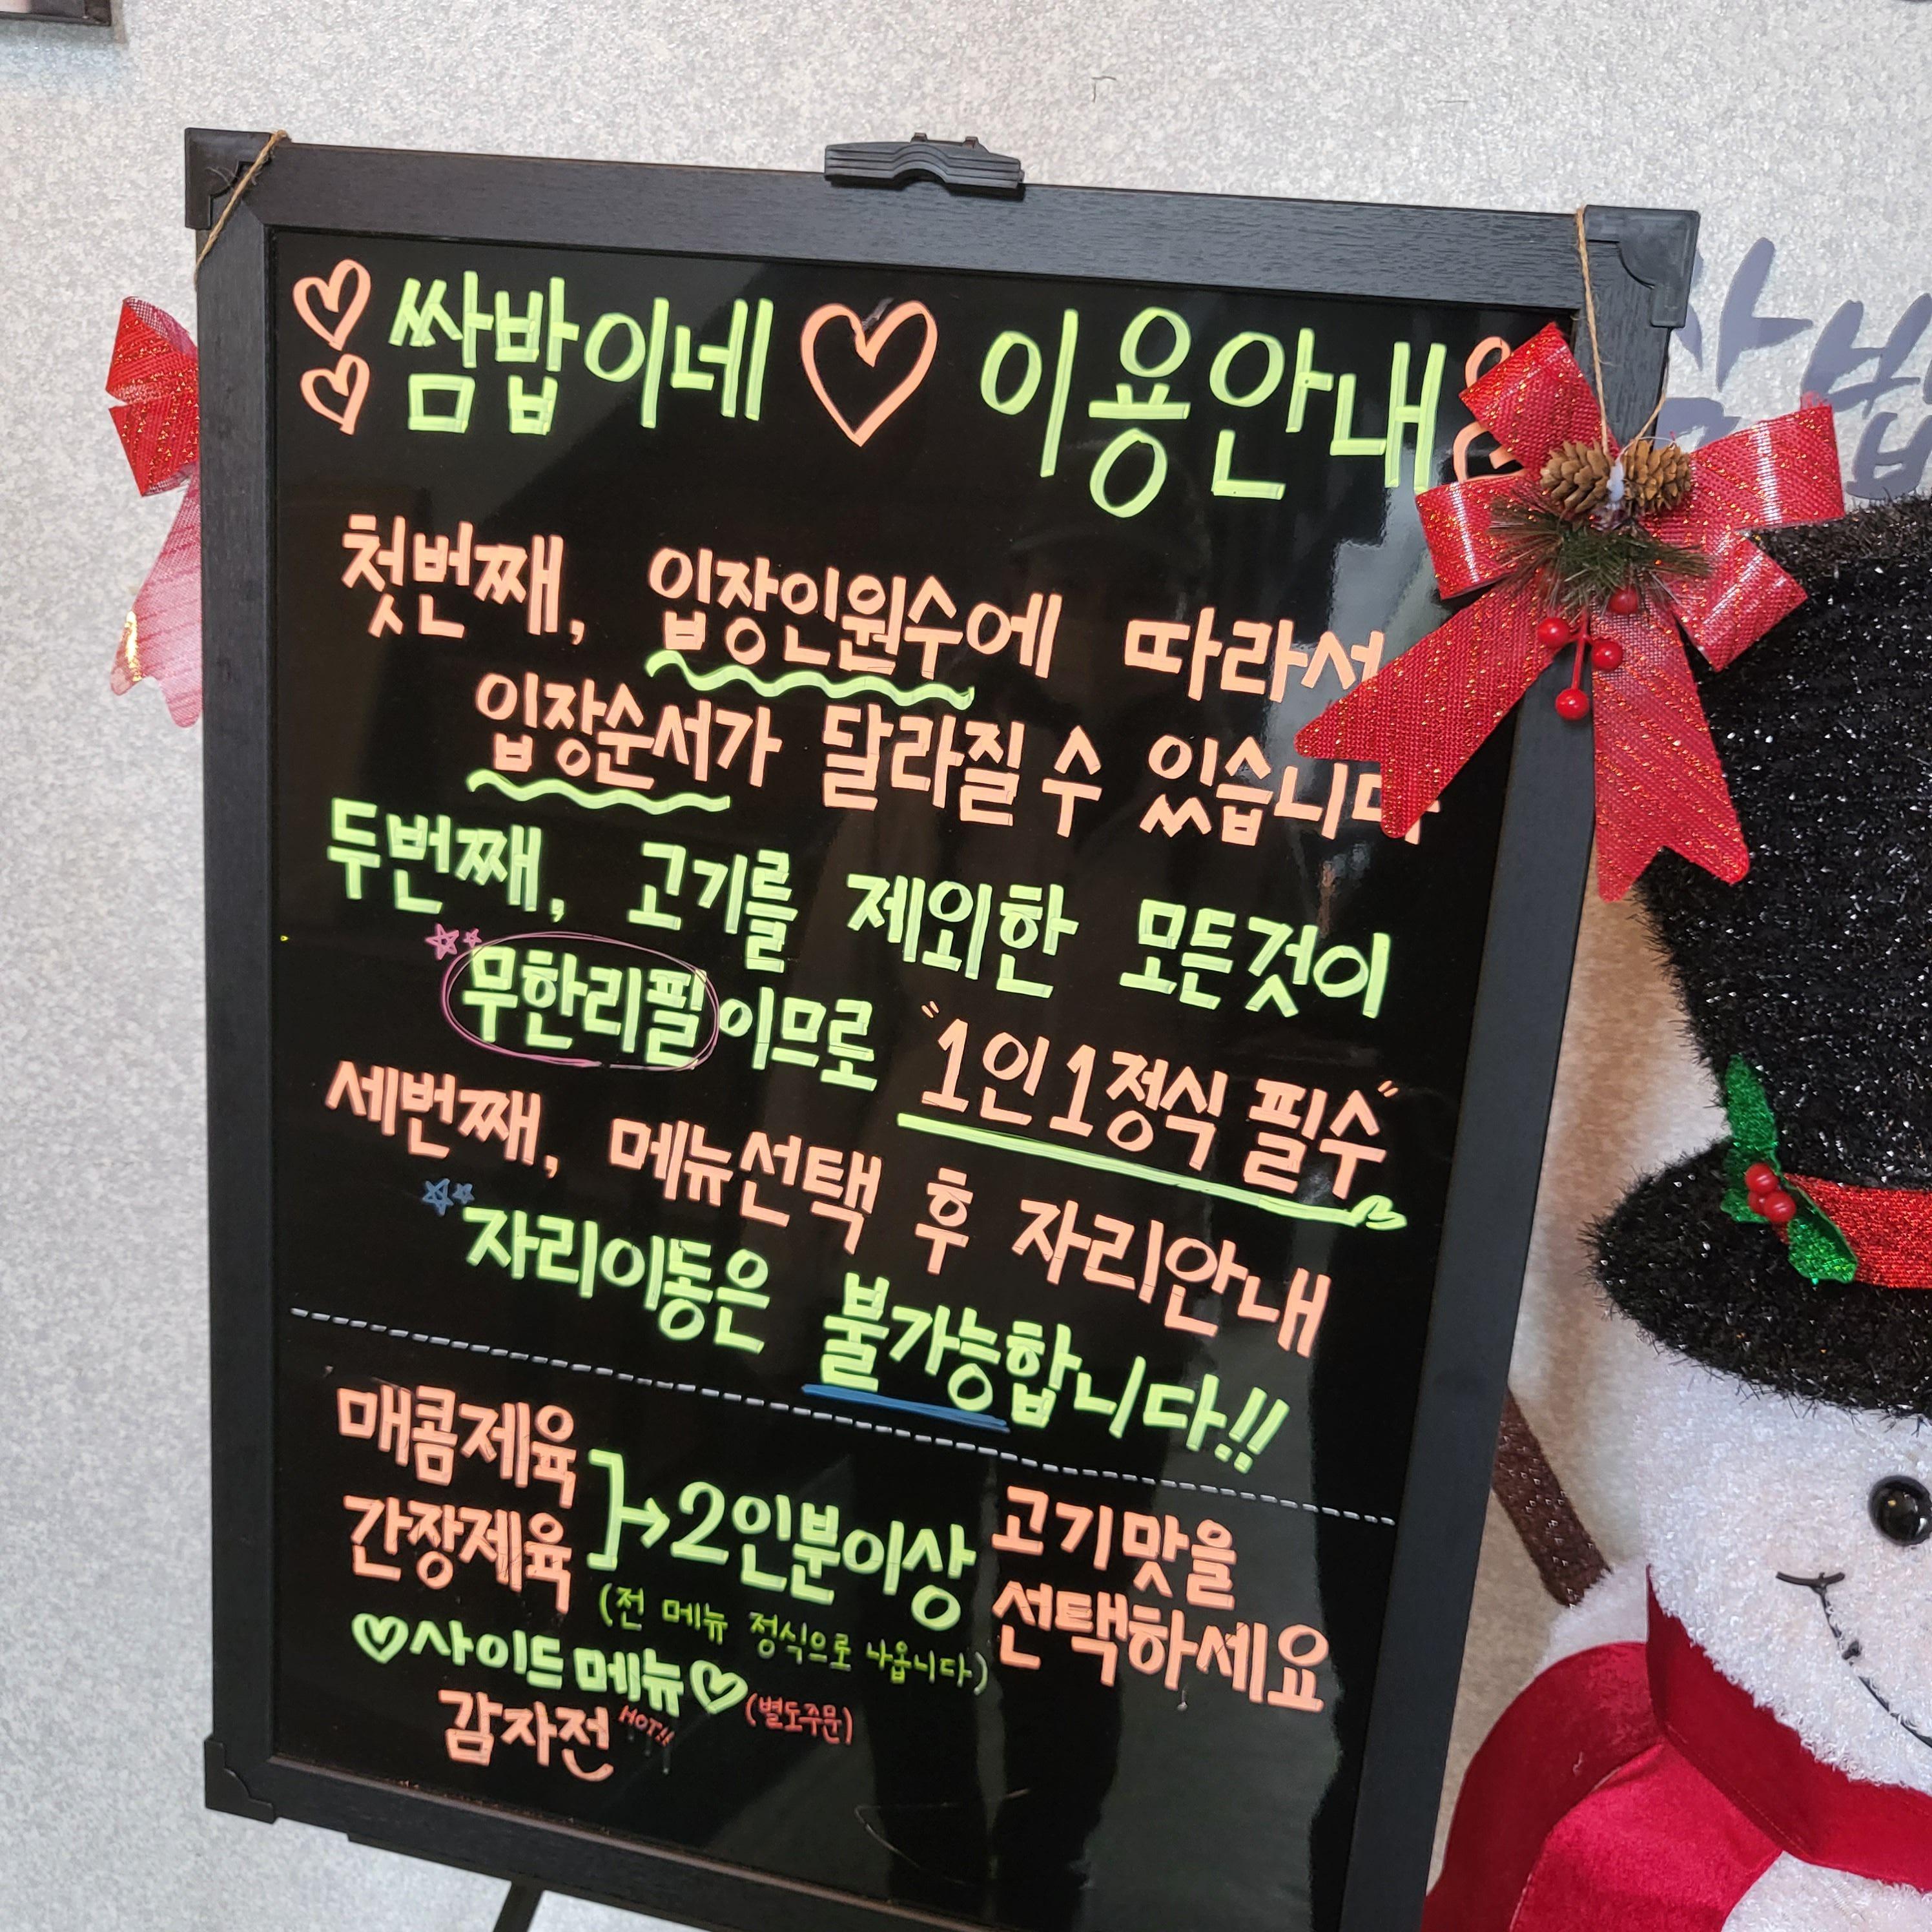 쌈밥이네 ♡ 이용안내
첫번째, 입장인원수에 따라서
입장순서가 달라질 수 있습니다
두번째, 고기를 제외한 모든것이
무한리필이므로 "1인 1정식 필수"
세번째, 메뉴선택 후 자리안내
자리이동은 불가능합니다!!
매콤제육
간장제육
}→2인분이상
고기맛을
선택하세요
(전 메뉴 정식으로 나옵니다)
♡사이드메뉴♡ (별도주문)
감자전 HOT!!